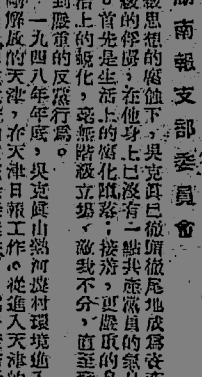 南報支部委員會
級思想的腐蝕下，吳克真已徹頭徹尾地成爲資產
級的俘虜，在他身上已沒有一點共產黨員的氣
。首先是生活上的腐化墮落；接着，更嚴重的
治上的蛻化，毫無階級立場，敵我不分，直至
到嚴重的反黨行爲。
一九四八年年底，吳克眞由熱河農村環境進
剛解放的天津，在天津日報工作。從進入天津